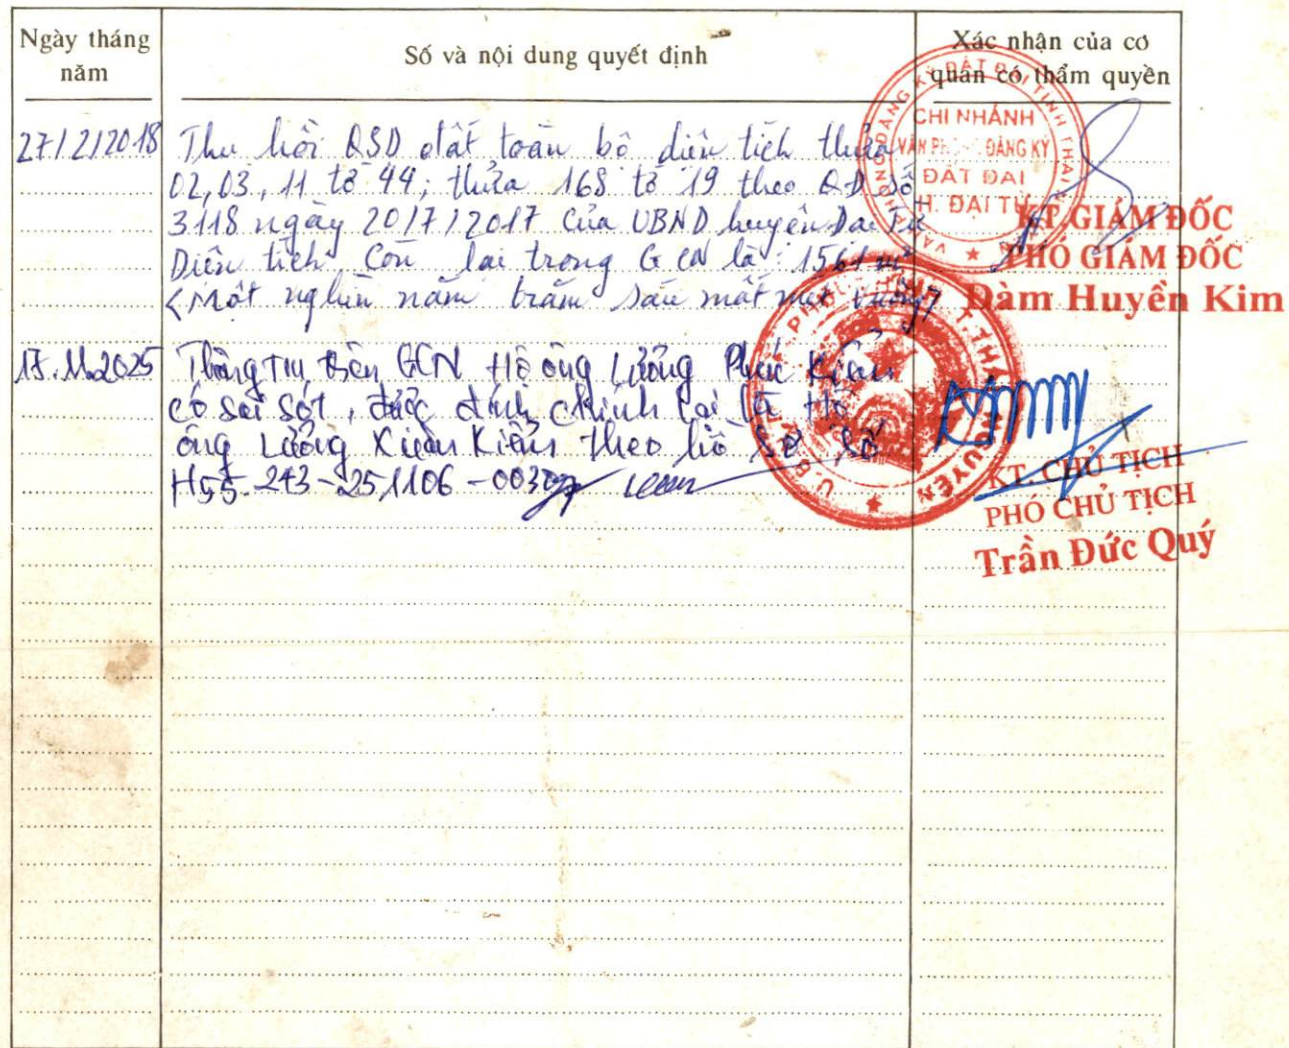 Ngày tháng năm
Số và nội dung quyết định
Xác nhận của cơ quan có thẩm quyền
27/2/2018
Thu hồi QSD đất toàn bộ diện tích thửa
02,03, 11 tờ 44; thửa 168 tờ 19 theo QĐ số
3118 ngày 20/7/2017 của UBND huyện Đại Từ
Diện tích còn lại trong GCN là: 1561 m²
(Một nghìn năm trăm sáu mốt mét vuông)
VĂN PHÒNG ĐĂNG KÝ ĐẤT ĐAI TỈNH THÁI
CHI NHÁNH
VĂN PHÒNG ĐĂNG KÝ
ĐẤT ĐAI
H. ĐẠI TỪ
KT.GIÁM ĐỐC
PHÓ GIÁM ĐỐC
Đàm Huyền Kim
.11.2025
Thông tin trên GCN Hộ ông Lương Phúc Kiểm
có sai sót, được đính chính lại là Hộ
ông Lương Xuân Kiểm theo hồ sơ số
H55.243-251106-0030
U.B.N.D
T.THÁI NGUYÊN
KT. CHỦ TỊCH
PHÓ CHỦ TỊCH
Trần Đức Quý